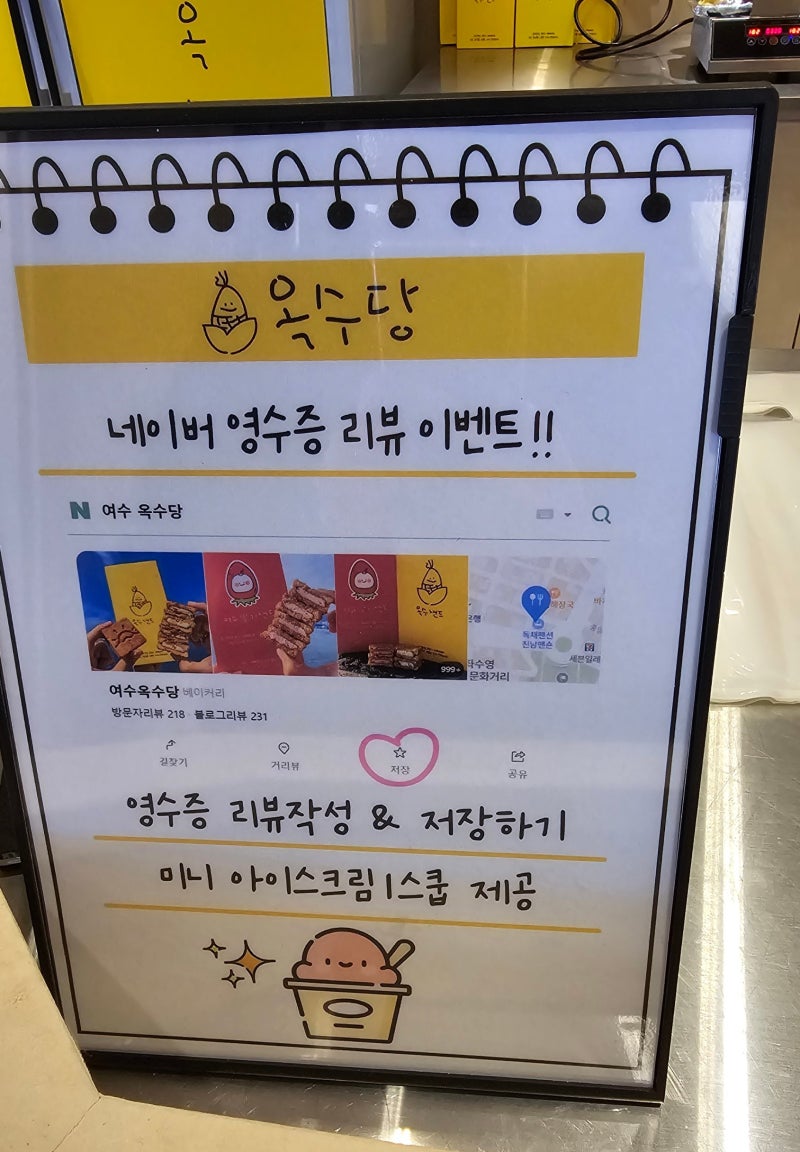 옥
옥수당
네이버 영수증 리뷰 이벤트!!
N 여수 옥수당
옥수샌드
999+
해장국
독채펜션
진남맨숀
세븐일레
좌수영
문화거리
여수옥수당 베이커리
방문자리뷰 218 · 블로그리뷰 231
길찾기 거리뷰 저장 공유
영수증 리뷰작성 & 저장하기
미니 아이스크림 1스쿱 제공